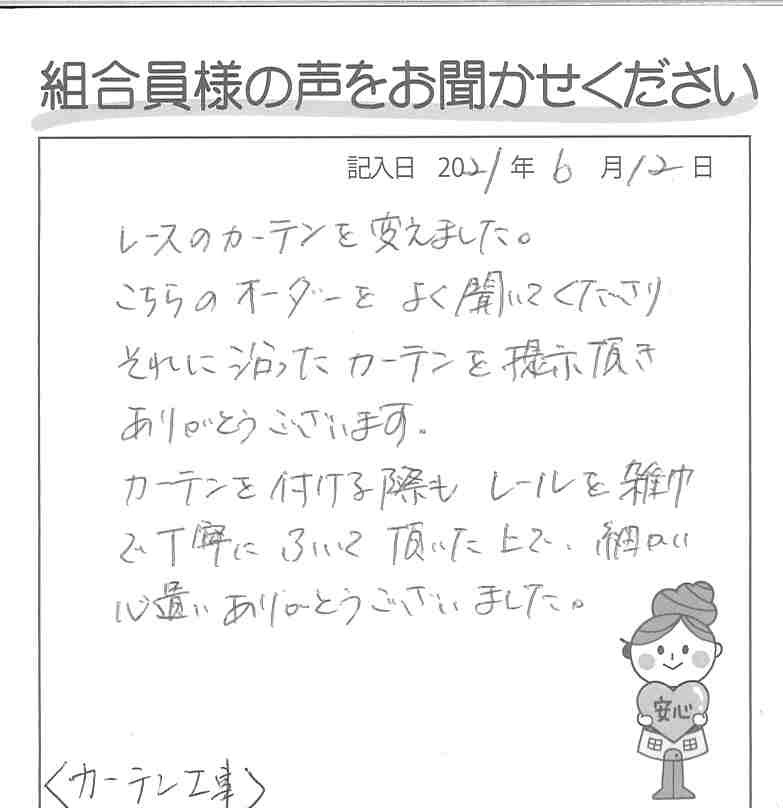 組合員様の声をお聞かせください
記入日 2021年 6月12日
レースのカーテンを変えました。
こちらのオーダーをよく聞いてくださり
それに沿ったカーテンを提示頂き
ありがとうございます。
カーテンを付ける際も レールを雑巾
で丁寧にふいて頂いた上で、細かい
心遣いありがとうございました。
安心
〈カーテン工事〉